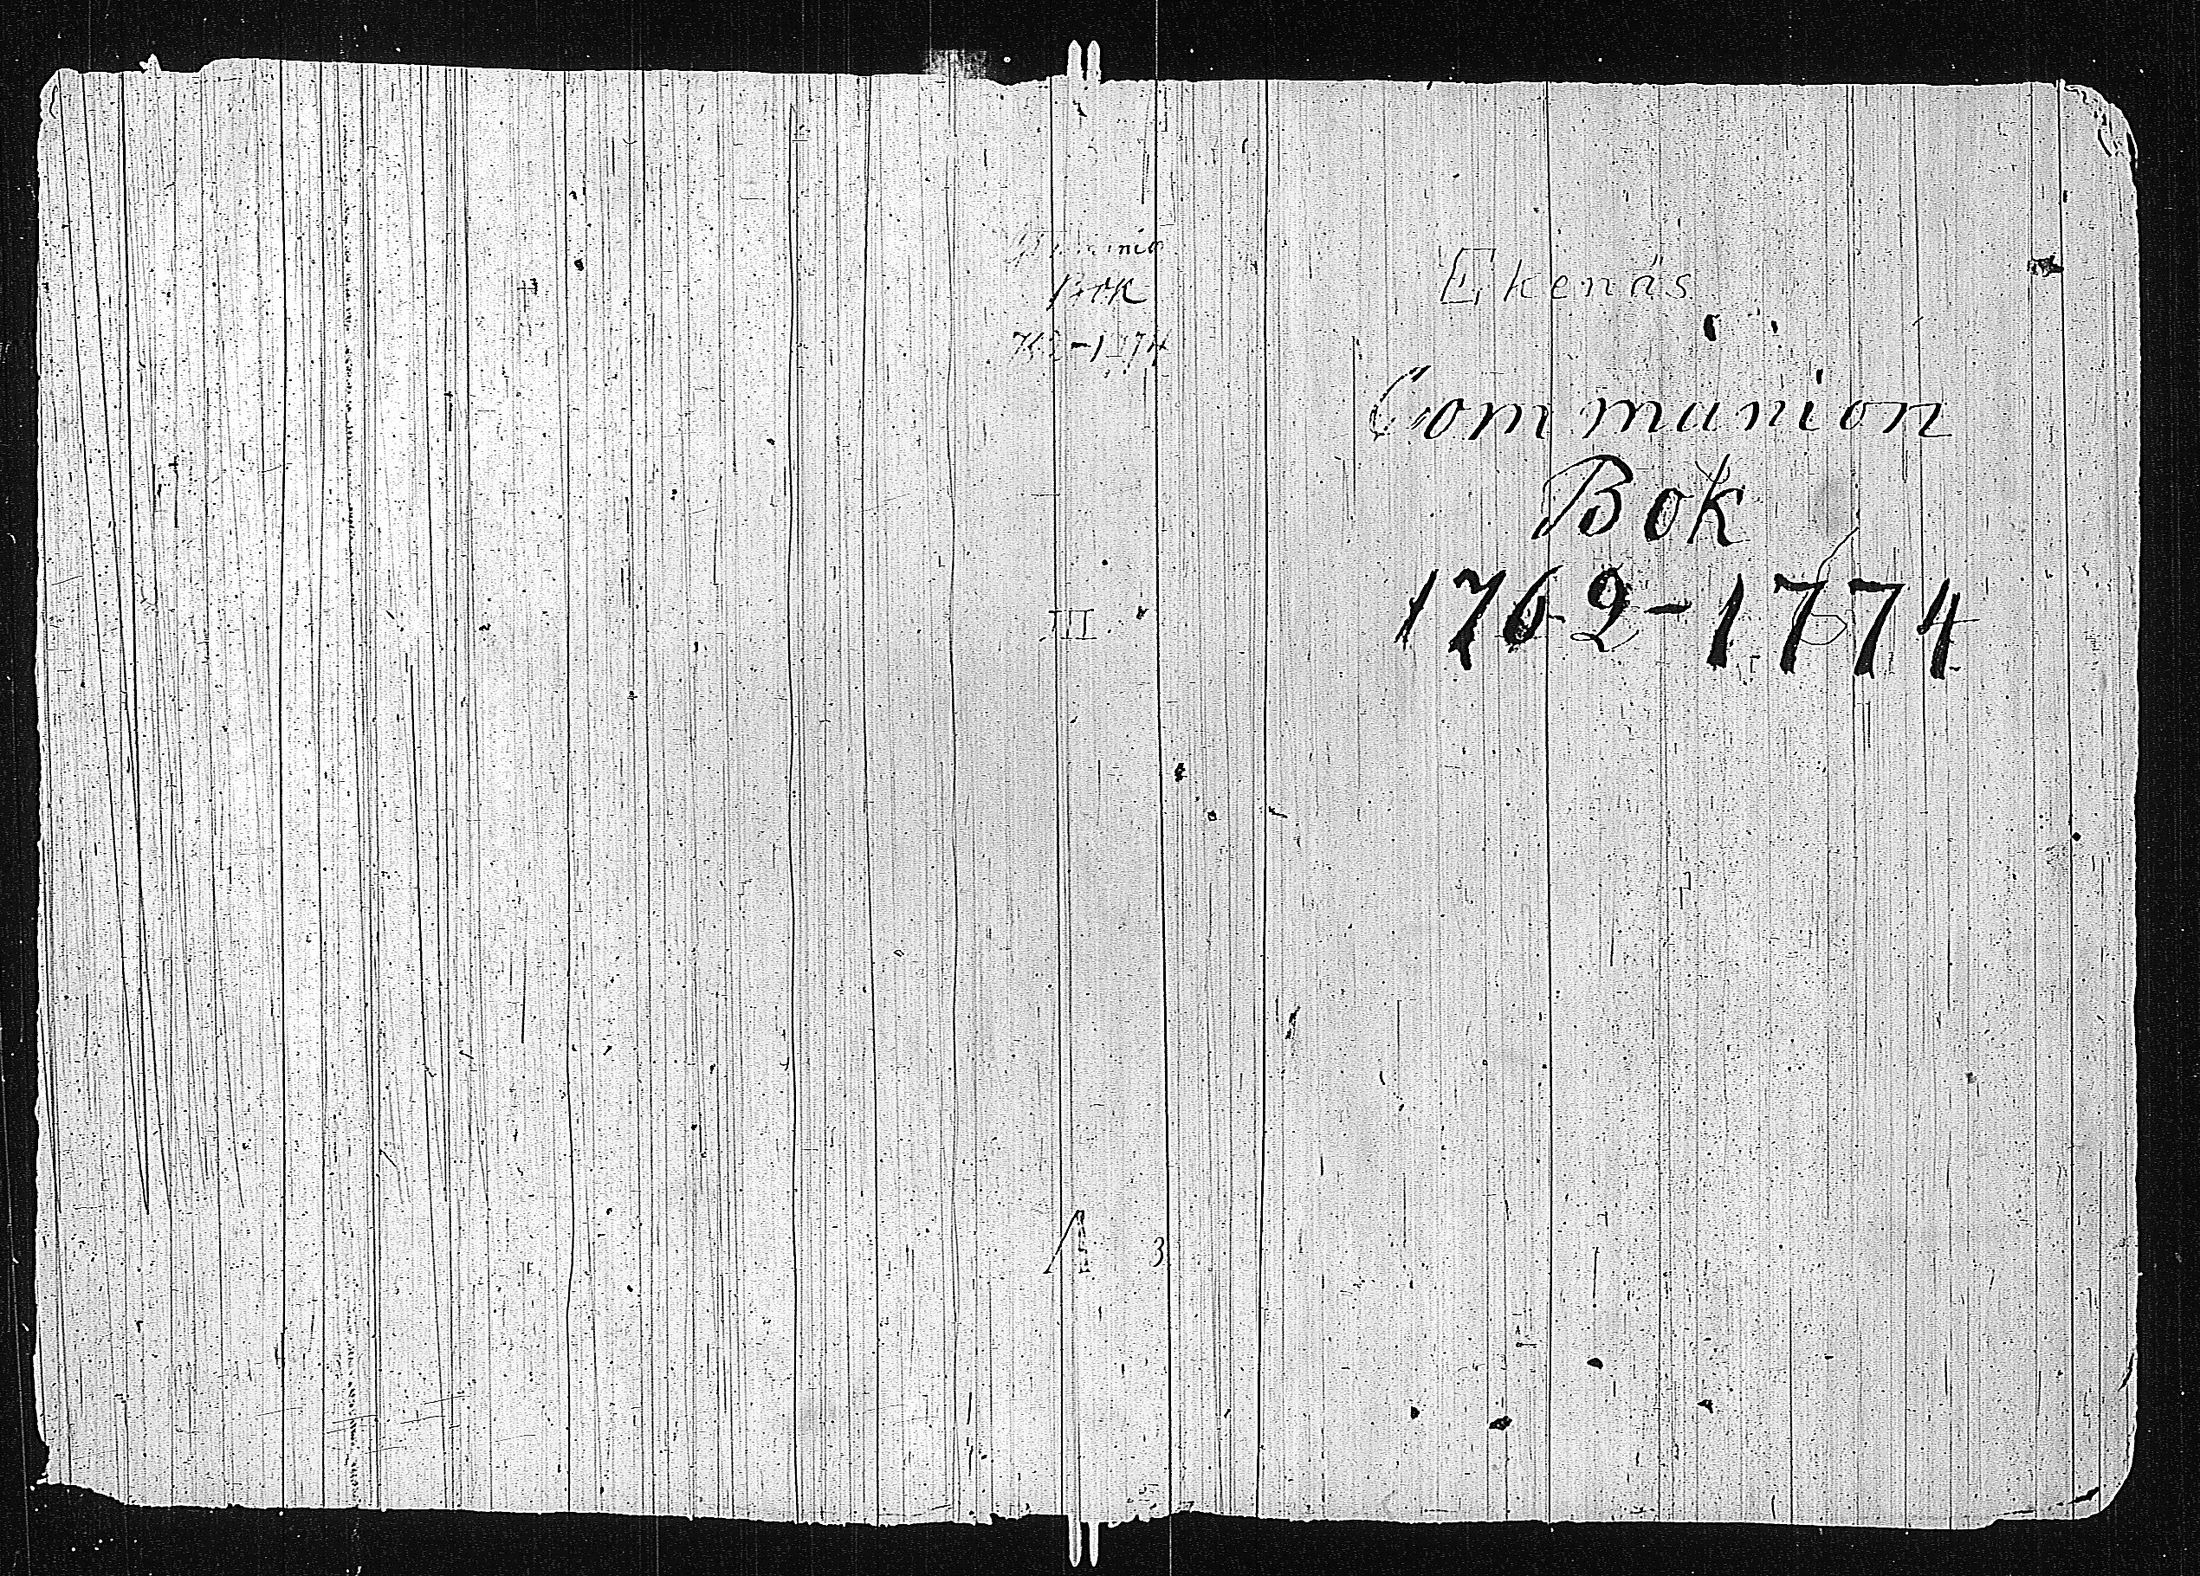 Bok
III
A 3
Ekenäs
Communion
Bok
1762-1774